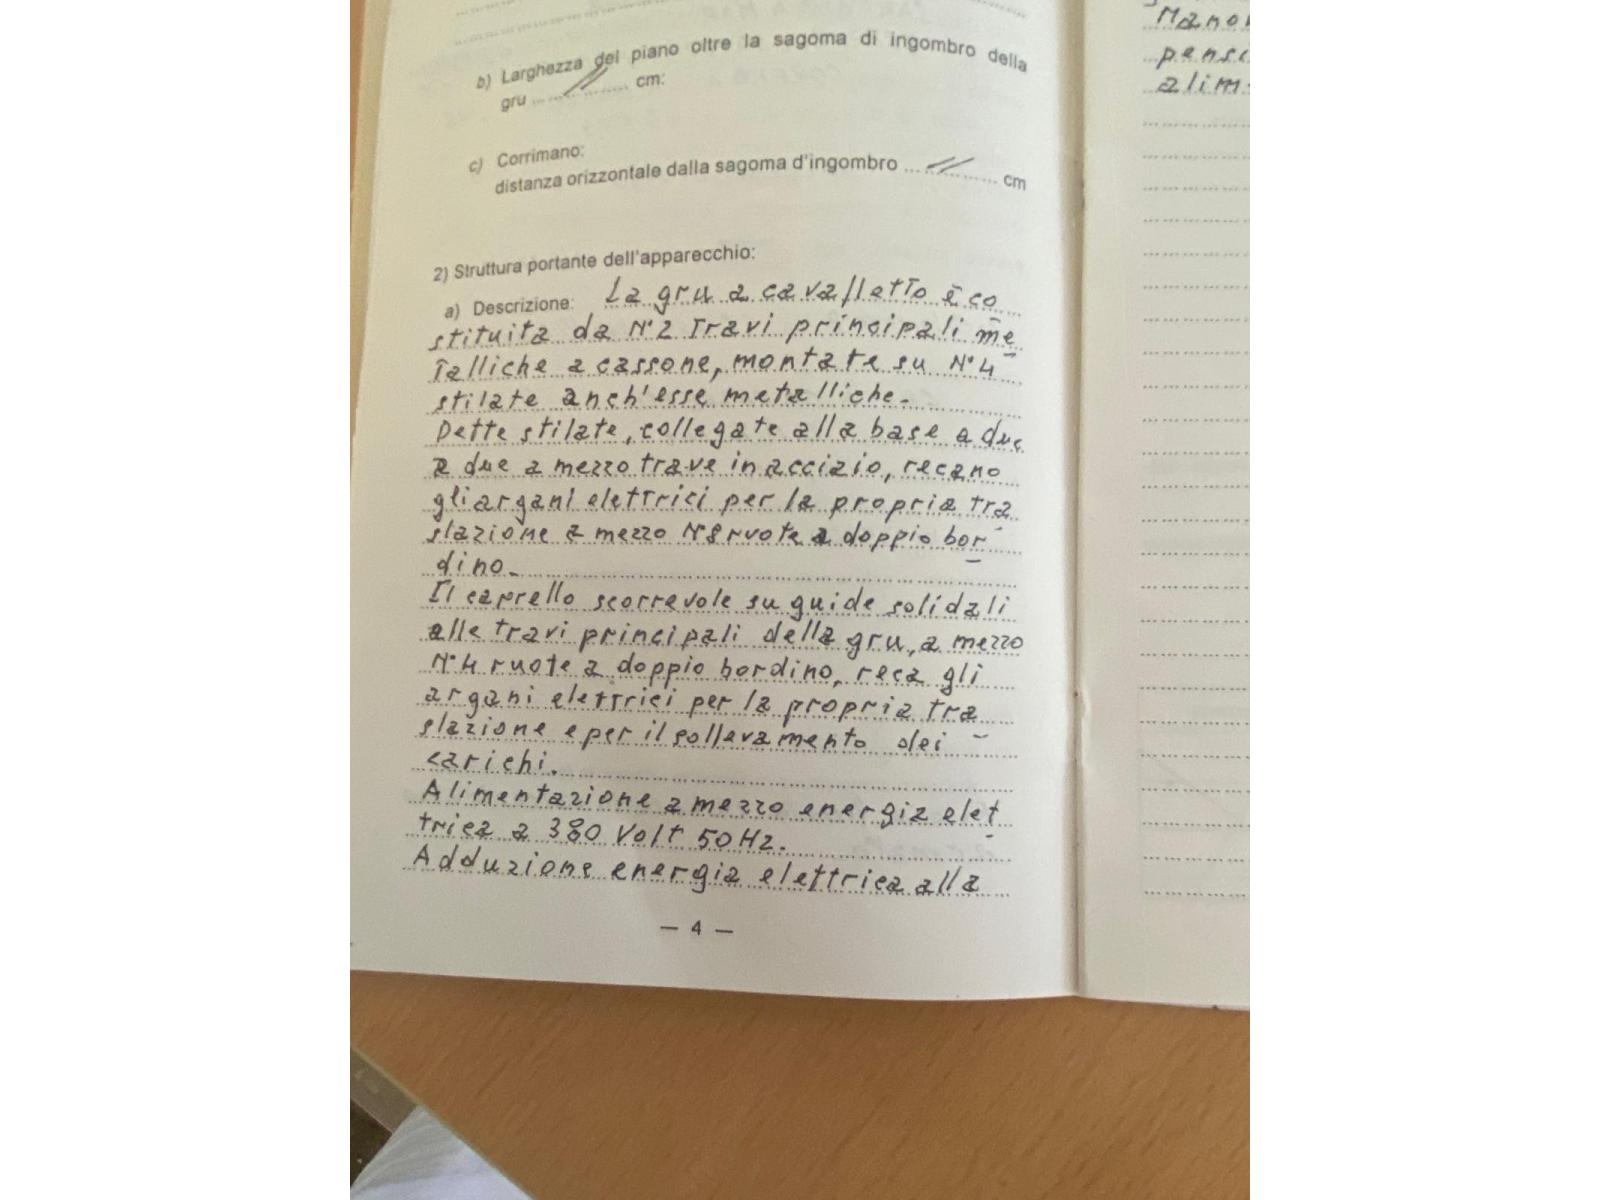 b) Larghezza del piano oltre la sagoma di ingombro della
gru ..... // ..... cm:
c) Corrimano:
distanza orizzontale dalla sagoma d'ingombro ... // ... cm
2) Struttura portante dell'apparecchio:
a) Descrizione: La gru a cavalletto è co
stituita da N°2 Travi principali me
talliche a cassone, montate su N°4
stilate anch'esse metalliche.
Dette stilate, collegate alla base a due
a due a mezzo trave in acciaio, recano
gli argani elettrici per la propria tra
slazione a mezzo N°8 ruote a doppio bor
dino.
Il carrello scorrevole su guide solidali
alle travi principali della gru, a mezzo
N°4 ruote a doppio bordino, reca gli
argani elettrici per la propria tra
slazione e per il sollevamento dei
carichi.
Alimentazione a mezzo energia elet
trica a 380 Volt 50Hz.
Adduzione energia elettrica alla
— 4 —